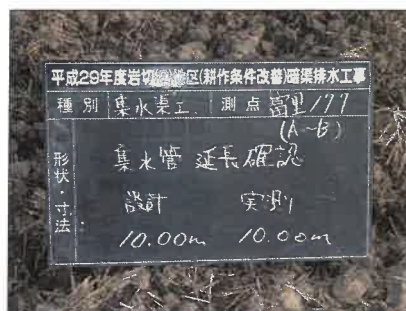 平成29年度岩切地区(耕作条件改善)暗渠排水工事
種別 集水渠工 測点 富里177
(A~B)
形状・寸法
集水管 延長確認
設計 実測
10.00m 10.00m